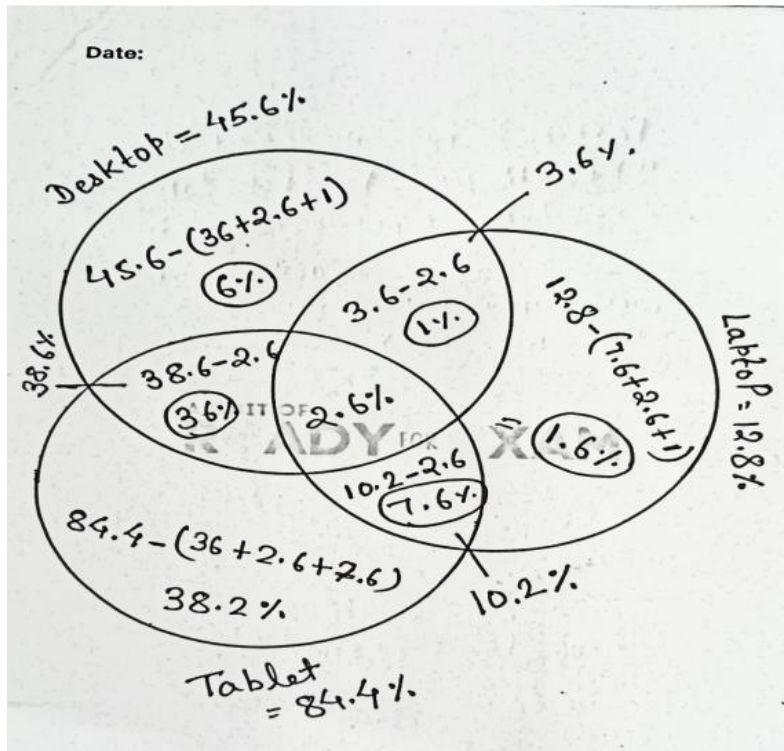 Date:
Desktop = 45.6%
3.6%.
45.6-(36+2.6+1)
6%
3.6-2.6
1%.
12.8-(7.6+2.6+1)
1.6%
Laptop = 12.8%
38.6%
38.6-2.6
36%
2.6%
10.2-2.6
7.6%.
84.4-(36+2.6+7.6)
38.2%
10.2%
Tablet
= 84.4%